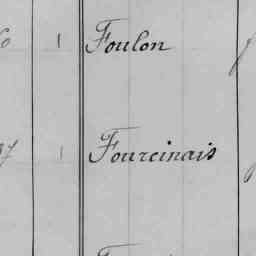 Foulon
Fourcinais